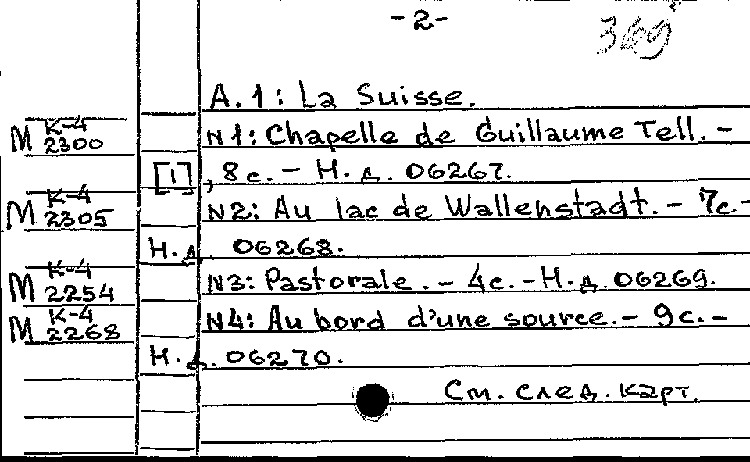 -2-
369
А.1: La Suisse.
М К-4 2300
N1: Chapelle de Guillaume Tell. -
[1], 8с. - Н.д. 06267.
М К-4 2305
N2: Au lac de Wallenstadt. - 7с. -
Н.д. 06268.
М К-4 2254
N3: Pastorale. - 4с. - Н.д. 06269.
М К-4 2268
N4: Au bord d'une source. - 9с. -
Н.д. 06270.
См. след. карт.